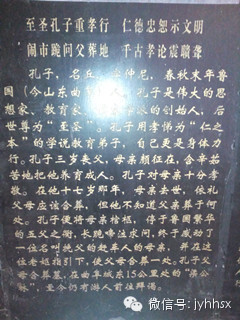 至圣孔子重孝行　仁德忠恕示文明
闹市跪问父葬地　千古孝论震聩聋
孔子，名丘，字仲尼，春秋末年鲁
国（今山东曲阜）人。孔子是伟大的思
想家、教育家、　　学派的创始人，后
世尊为“至圣”。孔子用孝悌为“仁之
本”的学说教育弟子，自己更是身体力
行。孔子三岁丧父，母亲颜征在，含辛茹
苦地把他养育成人。孔子对母亲十分孝
敬。在他十七岁那年，母亲去世，依礼
父母应该合葬，但他不知父亲葬于何
处。孔子便将母亲棺柩，停于鲁国繁华
的五父之衢，长跪啼泣求问，终于感动了
一位名叫挽父的赶车人的母亲，并在这
位老妪指引下，使父母合葬一处。孔子父
母合葬墓，在曲阜城东15公里处的“梁公
林”，至今仍有游人前往拜谒。
微信号：jyhhsx